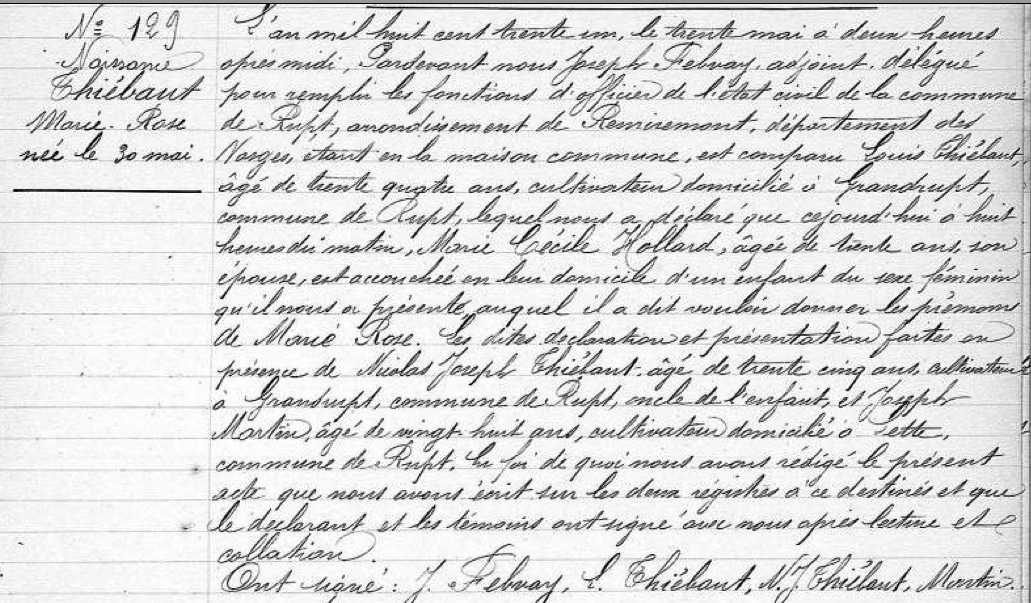 N° 129
Naissance
Thiébaut
Marie-Rose
née le 30 mai.
L'an mil huit cent trente un, le trente mai à deux heures
après midi, Pardevant nous Joseph Febvay, adjoint, délégué
pour remplir les fonctions d'officier de l'état civil de la commune
de Rupt, arrondissement de Remiremont, département des
Vosges, étant en la maison commune, est comparu Louis Thiébaut,
âgé de trente quatre ans, cultivateur domicilié à Grandrupt,
commune de Rupt, lequel nous a déclaré que cejourd'hui à huit
heures du matin, Marie Cécile Hollard, âgée de trente ans, son
epouse, est accouchée en leur domicile d'un enfant du sexe féminin
qu'il nous a présenté, auquel il a dit vouloir donner les prénoms
de Marie Rose. Les dites déclaration et présentation faites en
présence de Nicolas Joseph Thiébaut, âgé de trente cinq ans, cultivateur
à Grandrupt, commune de Rupt, oncle de l'enfant, et Joseph
Martin, âgé de vingt-huit ans, cultivateur domicilié à Lette,
commune de Rupt. En foi de quoi nous avons rédigé le présent
acte que nous avons écrit sur les deux régistres à ce destinés et que
le déclarant et les témoins ont signé avec nous après lecture et
collation.
Ont signé : J. Febvay, L. Thiébaut, N. J. Thiébaut, Martin.